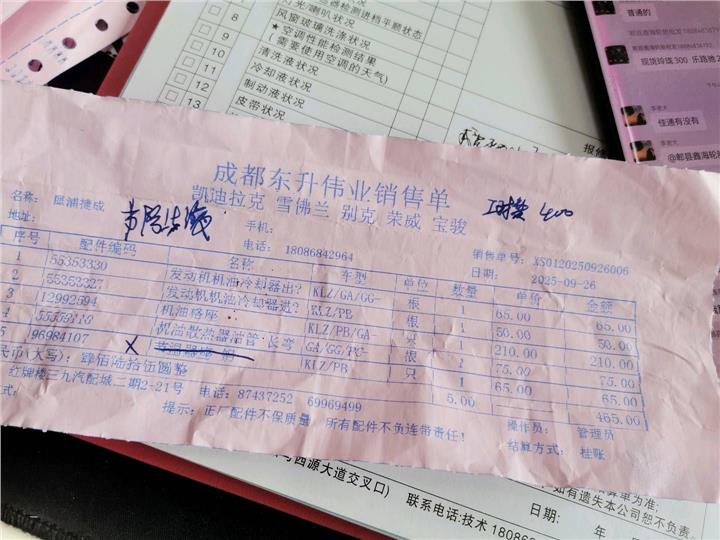 灯光/喇叭状况
8
风窗玻璃洗涤状况
9
*空调性能检测结果
(需要使用空调的天气)
10
清洗液状况
11
冷却液状况
12
制动液状况
13
皮带状况
普通的
现货玲珑300 乐路驰2
李老大
佳通有没有
李老大
@郫县鑫海轮
成都东升伟业销售单
凯迪拉克 雪佛兰 别克 荣威 宝骏
工时费 400
名称: 犀浦捷成
手机:
地址:
电话: 18086842964
销售单号: XS0120250926006
日期: 2025-09-26
序号 配件编码 名称 车型 单位 数量 单价 金额
1 55353330 发动机机油冷却器出? KLZ/GA/GG- 根 1 65.00 65.00
2 55353327 发动机机油冷却器进? KLZ/PB 根 1 50.00 50.00
3 12992594 机油格座 KLZ/PB/GA- 只 1 210.00 210.00
4 机油散热器油管 长弯 GA/GG/PC- 根 1 75.00 75.00
5 96984107 X KLZ/PB 只 1 65.00 65.00
民币(大写): 肆佰陆拾伍圆整 5.00 465.00
红牌楼三九汽配城二期2-21号 电话: 87437252 69969499
操作员: 管理员
式:
提示: 正厂配件不保质量 所有配件不负连带责任!
结算方式: 挂账
与西源大道交叉口)
联系电话:技术 18086
日期: 年
如有遗失本公司恕不负责。